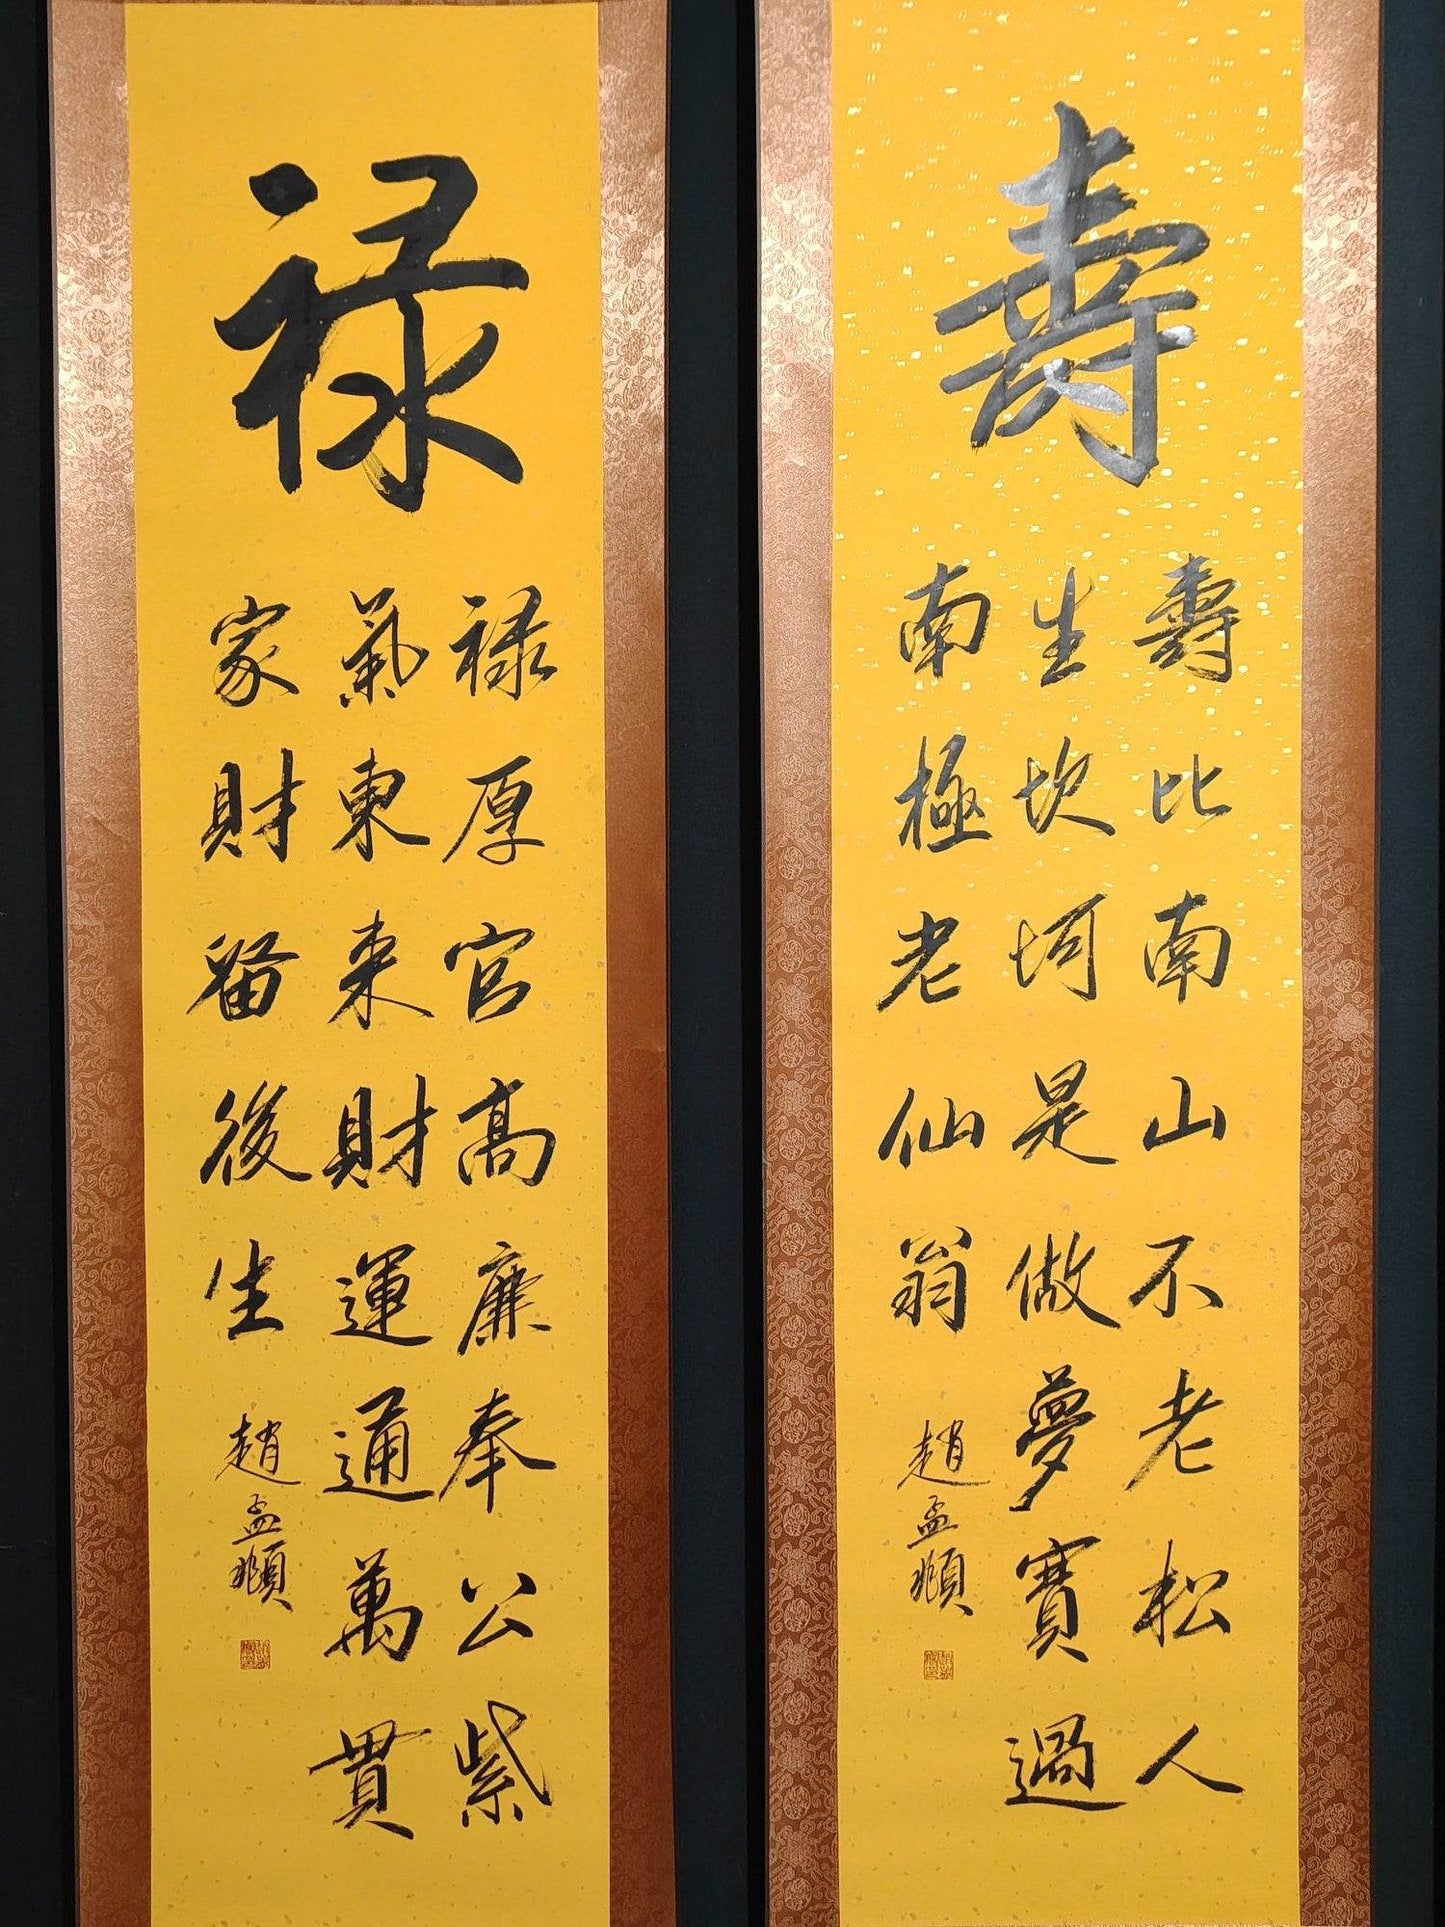 壽
壽比南山不老松人
生坎坷是做夢寶過
南極老仙翁
趙孟頫
祿
祿厚官高廉奉公紫
氣東來財運通萬貫
家財留後生
趙孟頫